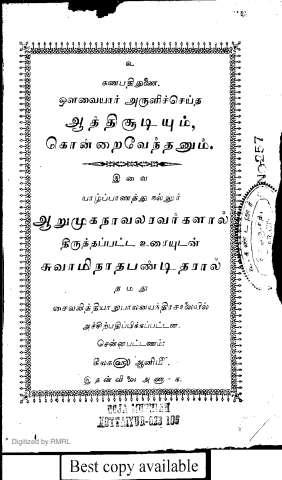 உ
கணபதிதுணை.
ஔவையார் அருளிச்செய்த
ஆத்திசூடியும்,
கொன்றைவேந்தனும்.
இவை
யாழ்ப்பாணத்து நல்லூர்
ஆறுமுகநாவலரவர்களால்
திருத்தப்பட்ட உரையுடன்
சுவாமிநாதபண்டிதரால்
தமது
சைவவித்தியாநுபாலனயந்திரசாலையில்
அச்சிற்பதிப்பிக்கப்பட்டன.
சென்னபட்டணம்:
ஆனிமீ
இதன் விலை அணா - க.
No 257
ROJA MUTHIAH
KOTTAIYUR-623 106
Digitized by RMRL
Best copy available